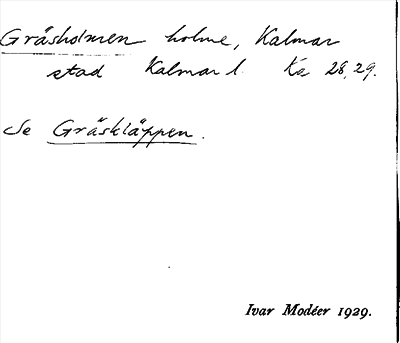 Gräsholmen holme, Kalmar
stad Kalmar l. Ka 28,29.
Se Gräskläppen.
Ivar Modéer 1929.